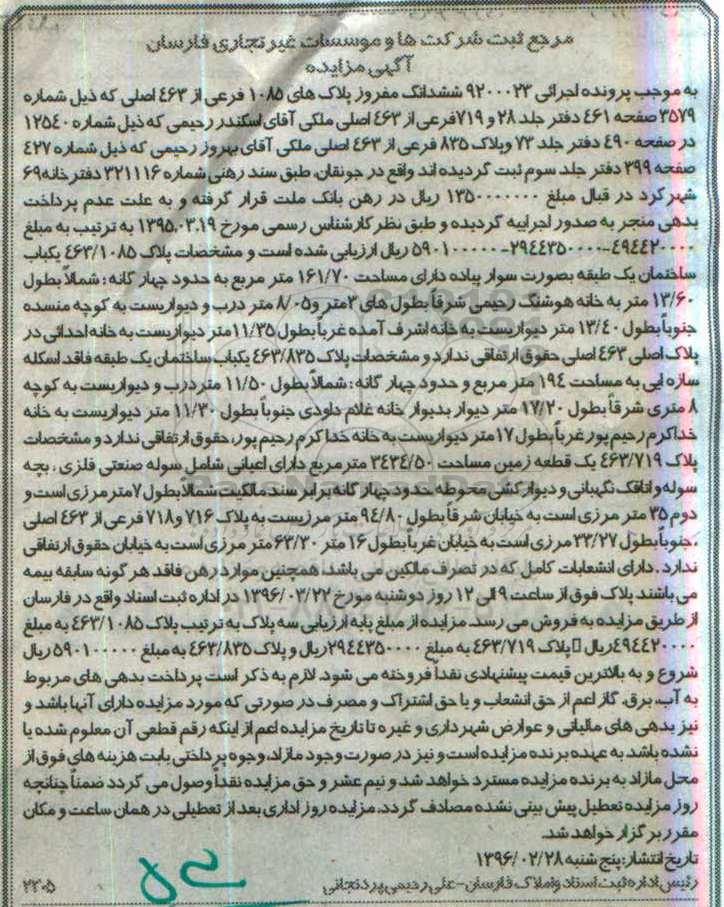 مرجع ثبت شرکت ها و موسسات غیر تجاری فارسان
آگهی مزایده
به موجب پرونده اجرائی ۹۲۰۰۰۲۳ ششدانگ مفروز پلاک های ۱۰۸۵ فرعی از ٤٦٣ اصلی که ذیل شماره
۳۵۷۹ صفحه ٤٦١ دفتر جلد ۲۸ و ۷۱۹ فرعی از ٤٦٣ اصلی ملکی آقای اسکندر رحیمی که ذیل شماره ۱۲۵٤۰
در صفحه ٤۹۰ دفتر جلد ۷۳ وپلاک ۸۳۵ فرعی از ٤٦٣ اصلی ملکی آقای بهروز رحیمی که ذیل شماره ٤۲۷
صفحه ۳۹۹ دفتر جلد سوم ثبت گردیده اند واقع در جونقان، طبق سند رهنی شماره ۳۲۱۱۱۶ دفتر خانه ۶۹
شهر کرد در قبال مبلغ ۱۳۵۰۰۰۰۰۰۰ ریال در رهن بانک ملت قرار گرفته و به علت عدم پرداخت
بدهی منجر به صدور اجراییه گردیده و طبق نظر کارشناس رسمی مورخ ۱۳۹۵.۰۳.۱۹ به ترتیب به مبلغ
٤۹٤٤۲۰۰۰۰-۲۹٤٤۳۵۰۰۰۰-۵۹۰۱۰۰۰۰۰ ریال ارزیابی شده است و مشخصات پلاک ٤٦٣/۱۰۸۵ یکباب
ساختمان یک طبقه بصورت سوار پیاده دارای مساحت ۱۶۱/۷۰ متر مربع به حدود چهار گانه : شمالاً بطول
۱۳/۶۰ متر به خانه هوشنگ رحیمی شرقاً بطول های ۳متر و ۸/۰۵ متر درب و دیواریست به کوچه منسده
جنوباً بطول ۱۳/٤۰ متر دیواریست به خانه اشرف آمده غرباً بطول ۱۱/۳۵ متر دیواریست به خانه احداثی در
پلاک اصلی ٤٦٣ اصلی حقوق ارتفاقی ندارد و مشخصات پلاک ٤٦٣/۸۳۵ یکباب ساختمان یک طبقه فاقد اسکله
سازه ایی به مساحت ۱۹٤ متر مربع و حدود چهار گانه : شمالاً بطول ۱۱/۵۰ متر درب و دیواریست به کوچه
۸ متری شرقاً بطول ۱۷/۲۰ متر دیوار بدیوار خانه غلام داودی جنوباً بطول ۱۱/۳۰ متر دیواریست به خانه
خداکرم رحیم پور غرباً بطول ۱۷ متر دیواریست به خانه خدا کرم رحیم پور، حقوق ارتفاقی ندارد و مشخصات
پلاک ٤٦٣/۷۱۹ یک قطعه زمین مساحت ۳٤۳٤/۵۰ متر مربع دارای اعیانی شامل سوله صنعتی فلزی ، بچه
سوله و اتاقک نگهبانی و دیوار کشی محوطه حدود چهار گانه برابر سند مالکیت شمالا بطول ۷متر مرزی است و
دوم ۳۵ متر مرزی است به خیابان شرقاً بطول ۹٤/۸۰ متر مرزیست به پلاک ۷۱۶ و ۷۱۸ فرعی از ٤٦٣ اصلی
، جنوباً بطول ۳۳/۲۷ مرزی است به خیابان غرباً بطول ۱۶ متر ۶۳/۳۰ متر مرزی است به خیابان حقوق ارتفاقی
ندارد . دارای انشعابات کامل که در تصرف مالکین می باشد، همچنین موارد رهن فاقد هر گونه سابقه بیمه
می باشند پلاک فوق از ساعت ۹ الی ۱۲ روز دوشنبه مورخ ۱۳۹۶/۰۳/۲۲ در اداره ثبت اسناد واقع در فارسان
از طریق مزایده به فروش می رسد. مزایده از مبلغ پایه ارزیابی سه پلاک به ترتیب پلاک ٤٦٣/۱۰۸۵ به مبلغ
٤۹٤٤۲۰۰۰۰ ریال پلاک ٤٦٣/۷۱۹ به مبلغ ۲۹٤٤۳۵۰۰۰۰ ریال و پلاک ٤٦٣/۸۳۵ به مبلغ ۵۹۰۱۰۰۰۰۰ ریال
شروع و به بالاترین قیمت پیشنهادی نقداً فروخته می شود. لازم به ذکر است پرداخت بدهی های مربوط
به آب، برق، گاز اعم از حق انشعاب و یا حق اشتراک و مصرف در صورتی که مورد مزایده دارای آنها باشد و
نیز بدهی های مالیاتی و عوارض شهرداری و غیره تا تاریخ مزایده اعم از اینکه رقم قطعی آن معلوم شده یا
نشده باشد به عهده برنده مزایده است و نیز در صورت وجود مازاد، وجوه پرداختی بابت هزینه های فوق از
محل مازاد به برنده مزایده مسترد خواهد شد و نیم عشر و حق مزایده نقداً وصول می گردد ضمناً چنانچه
روز مزایده تعطیل پیش بینی نشده مصادف گردد، مزایده روز اداری بعد از تعطیلی در همان ساعت و مکان
مقرر برگزار خواهد شد.
تاریخ انتشار: پنج شنبه ۱۳۹۶/۰۲/۲۸
رئیس اداره ثبت اسناد واملاک فارسان - علی رحیمی پردنجانی
۲۲۰۵